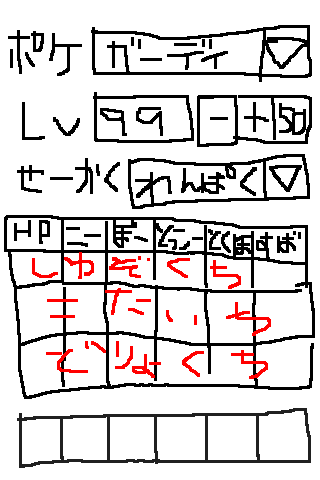 ポケ ガーディ ▽
Lv 99 - + 50
せーかく わんぱく ▽
HP こー ぼー とっこー とくぼ すば
しゅぞくち
きたいち
どりょくち